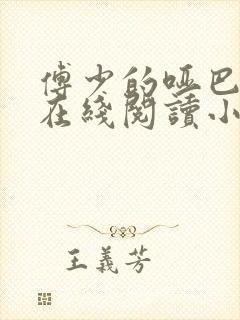 傅少的哑巴
在綫閱讀小
王義芳